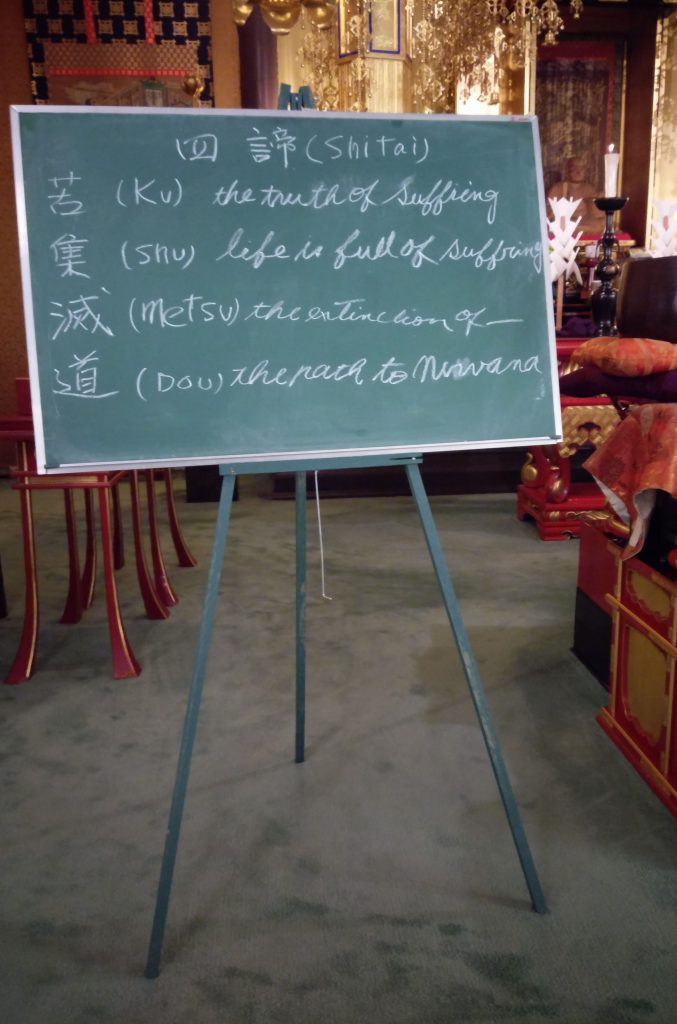 四諦 (Shitai)
苦 (Ku) the truth of suffring
集 (Shu) life is full of suffring
滅 (Metsu) the extinction of —
道 (Dou) the path to Nirvana